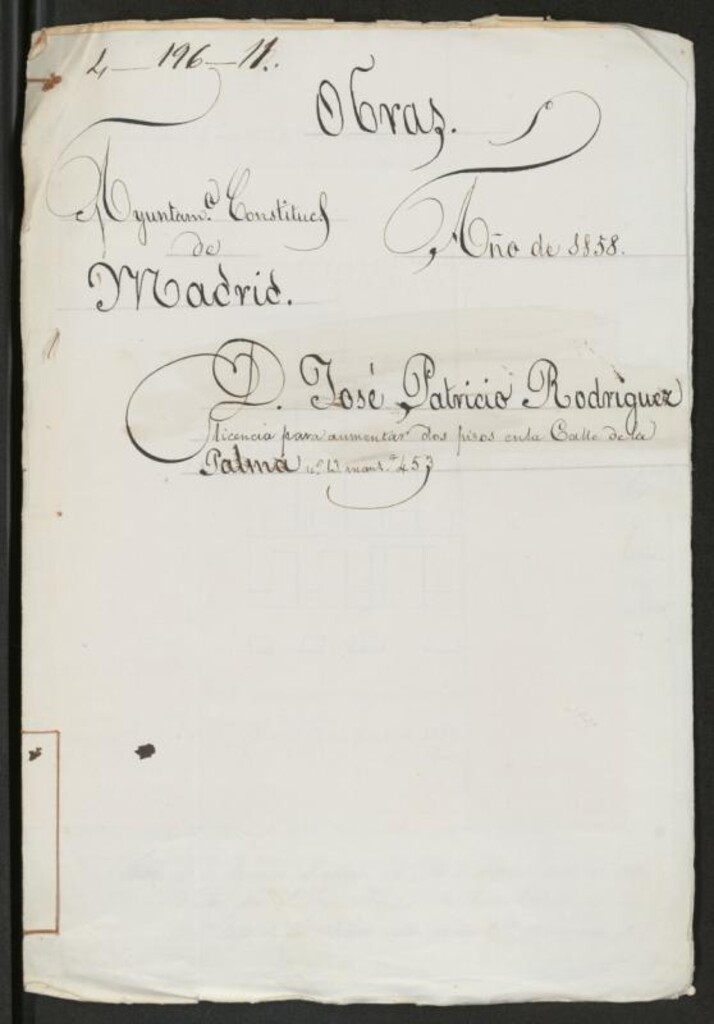 4-196-11.
Obras.
Ayuntam.º Constitucl
de
Madrid.
Año de 1858.
D. José Patricio Rodriguez
licencia para aumentar dos pisos en la Calle de la
Palma nº 13 manz.ª 453